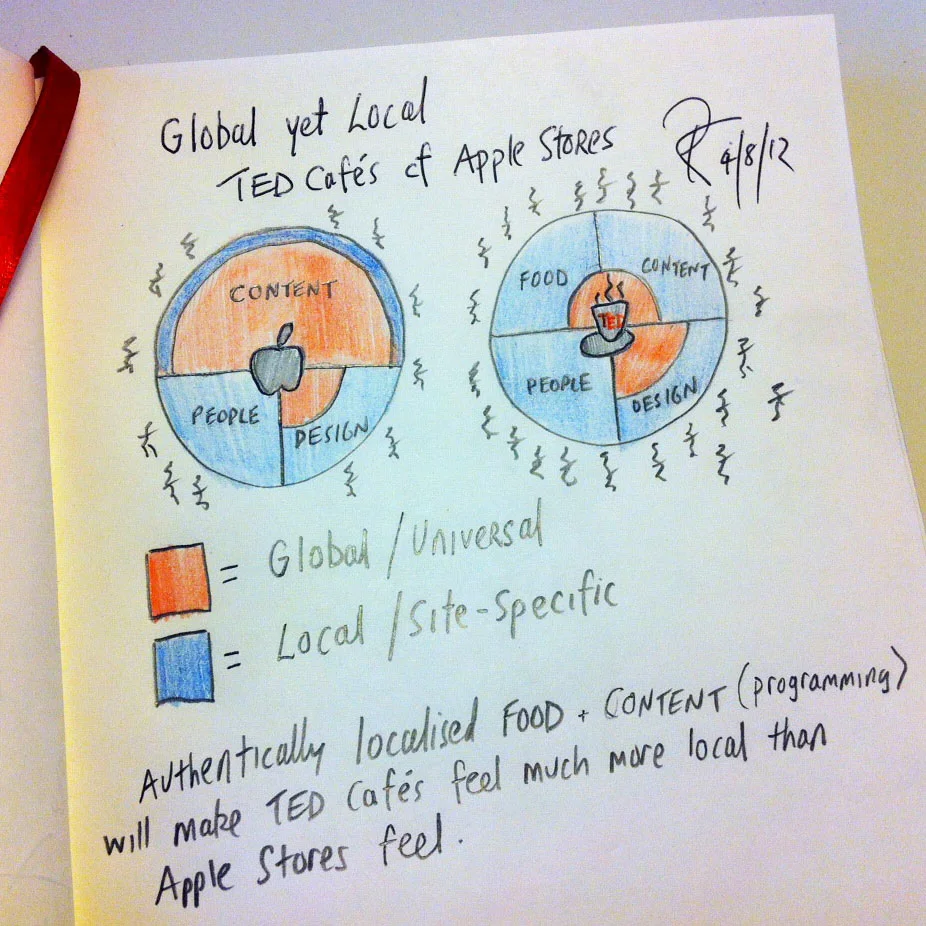 Global yet Local
TED Cafés cf Apple Stores
4/8/12
CONTENT
PEOPLE
DESIGN
FOOD
CONTENT
TED
PEOPLE
DESIGN
= Global / Universal
= Local / Site-Specific
Authentically localised FOOD + CONTENT (programming)
will make TED Cafés feel much more local than
Apple Stores feel.